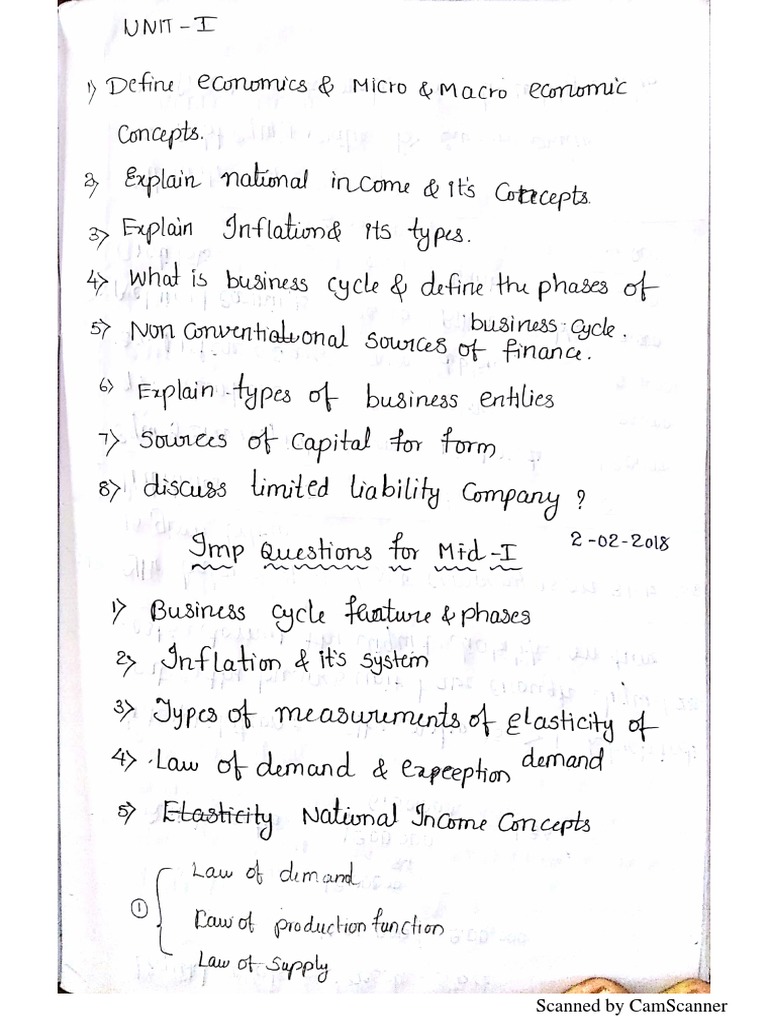 UNIT-I
1) Define economics & Micro & Macro economic
Concepts.
2) Explain national income & it's Concepts.
3) Explain Inflation & its types.
4) What is business cycle & define the phases of
business cycle.
5) Non Conventional sources of finance.
6) Explain types of business entities
7) Sources of Capital for form
8) discuss limited liability Company ?
Imp Questions for Mid-I 2-02-2018
1) Business cycle feature & phases
2) Inflation & it's system
3) Types of measurements of Elasticity of
demand
4) Law of demand & expception
5) Elasticity National Income Concepts
① Law of demand
Law of production function
Law of Supply
Scanned by CamScanner